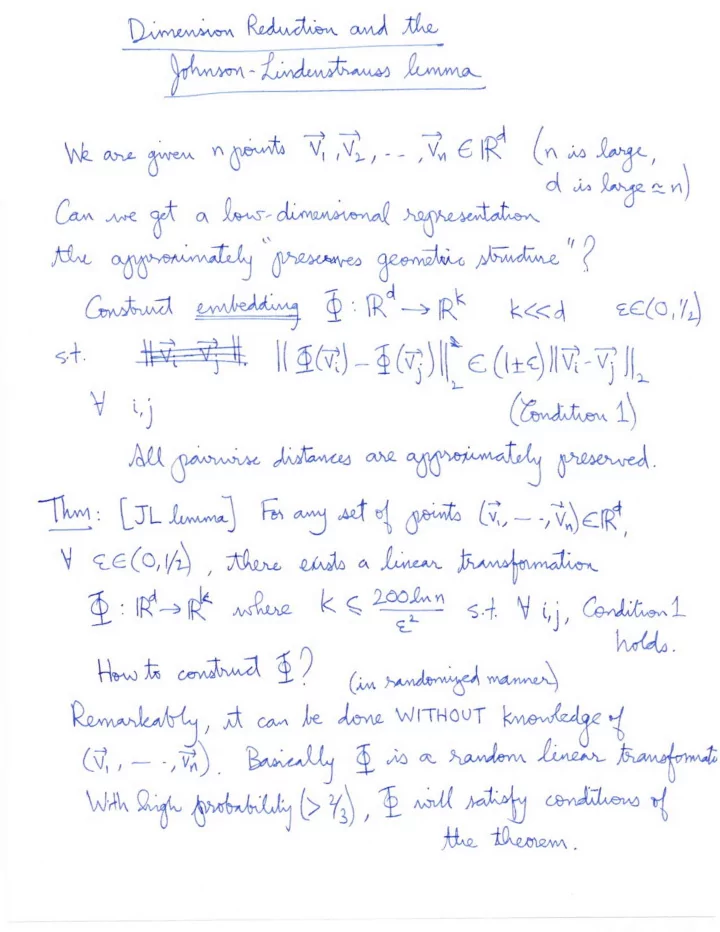 Dimension Reduction and the
Johnson-Lindenstrauss lemma
We are given n points v⃗₁, v⃗₂, .., v⃗ₙ ∈ ℝᵈ (n is large,
d is large ≃ n)
Can we get a low-dimensional representation
the approximately "preserves geometric structure"?
Construct embedding Φ : ℝᵈ → ℝᵏ k<<d ε∈(0,1/2)
s.t. ‖Φ(v⃗ᵢ) – Φ(v⃗ⱼ)‖₂ ∈ (1±ε)‖v⃗ᵢ – v⃗ⱼ‖₂
∀ i,j (Condition 1)
All pairwise distances are approximately preserved.
Thm: [JL lemma] For any set of points (v⃗₁, – ·, v⃗ₙ) ∈ ℝᵈ,
∀ ε∈(0,1/2), there exists a linear transformation
Φ : ℝᵈ → ℝᵏ where k ≤ 200 ln n / ε² s.t. ∀ i,j, Condition 1
holds.
How to construct Φ? (in randomized manner)
Remarkably, it can be done WITHOUT knowledge of
(v⃗₁, – ·, v⃗ₙ). Basically Φ is a random linear transformati
With high probability (> 2/3), Φ will satisfy conditions of
the theorem.